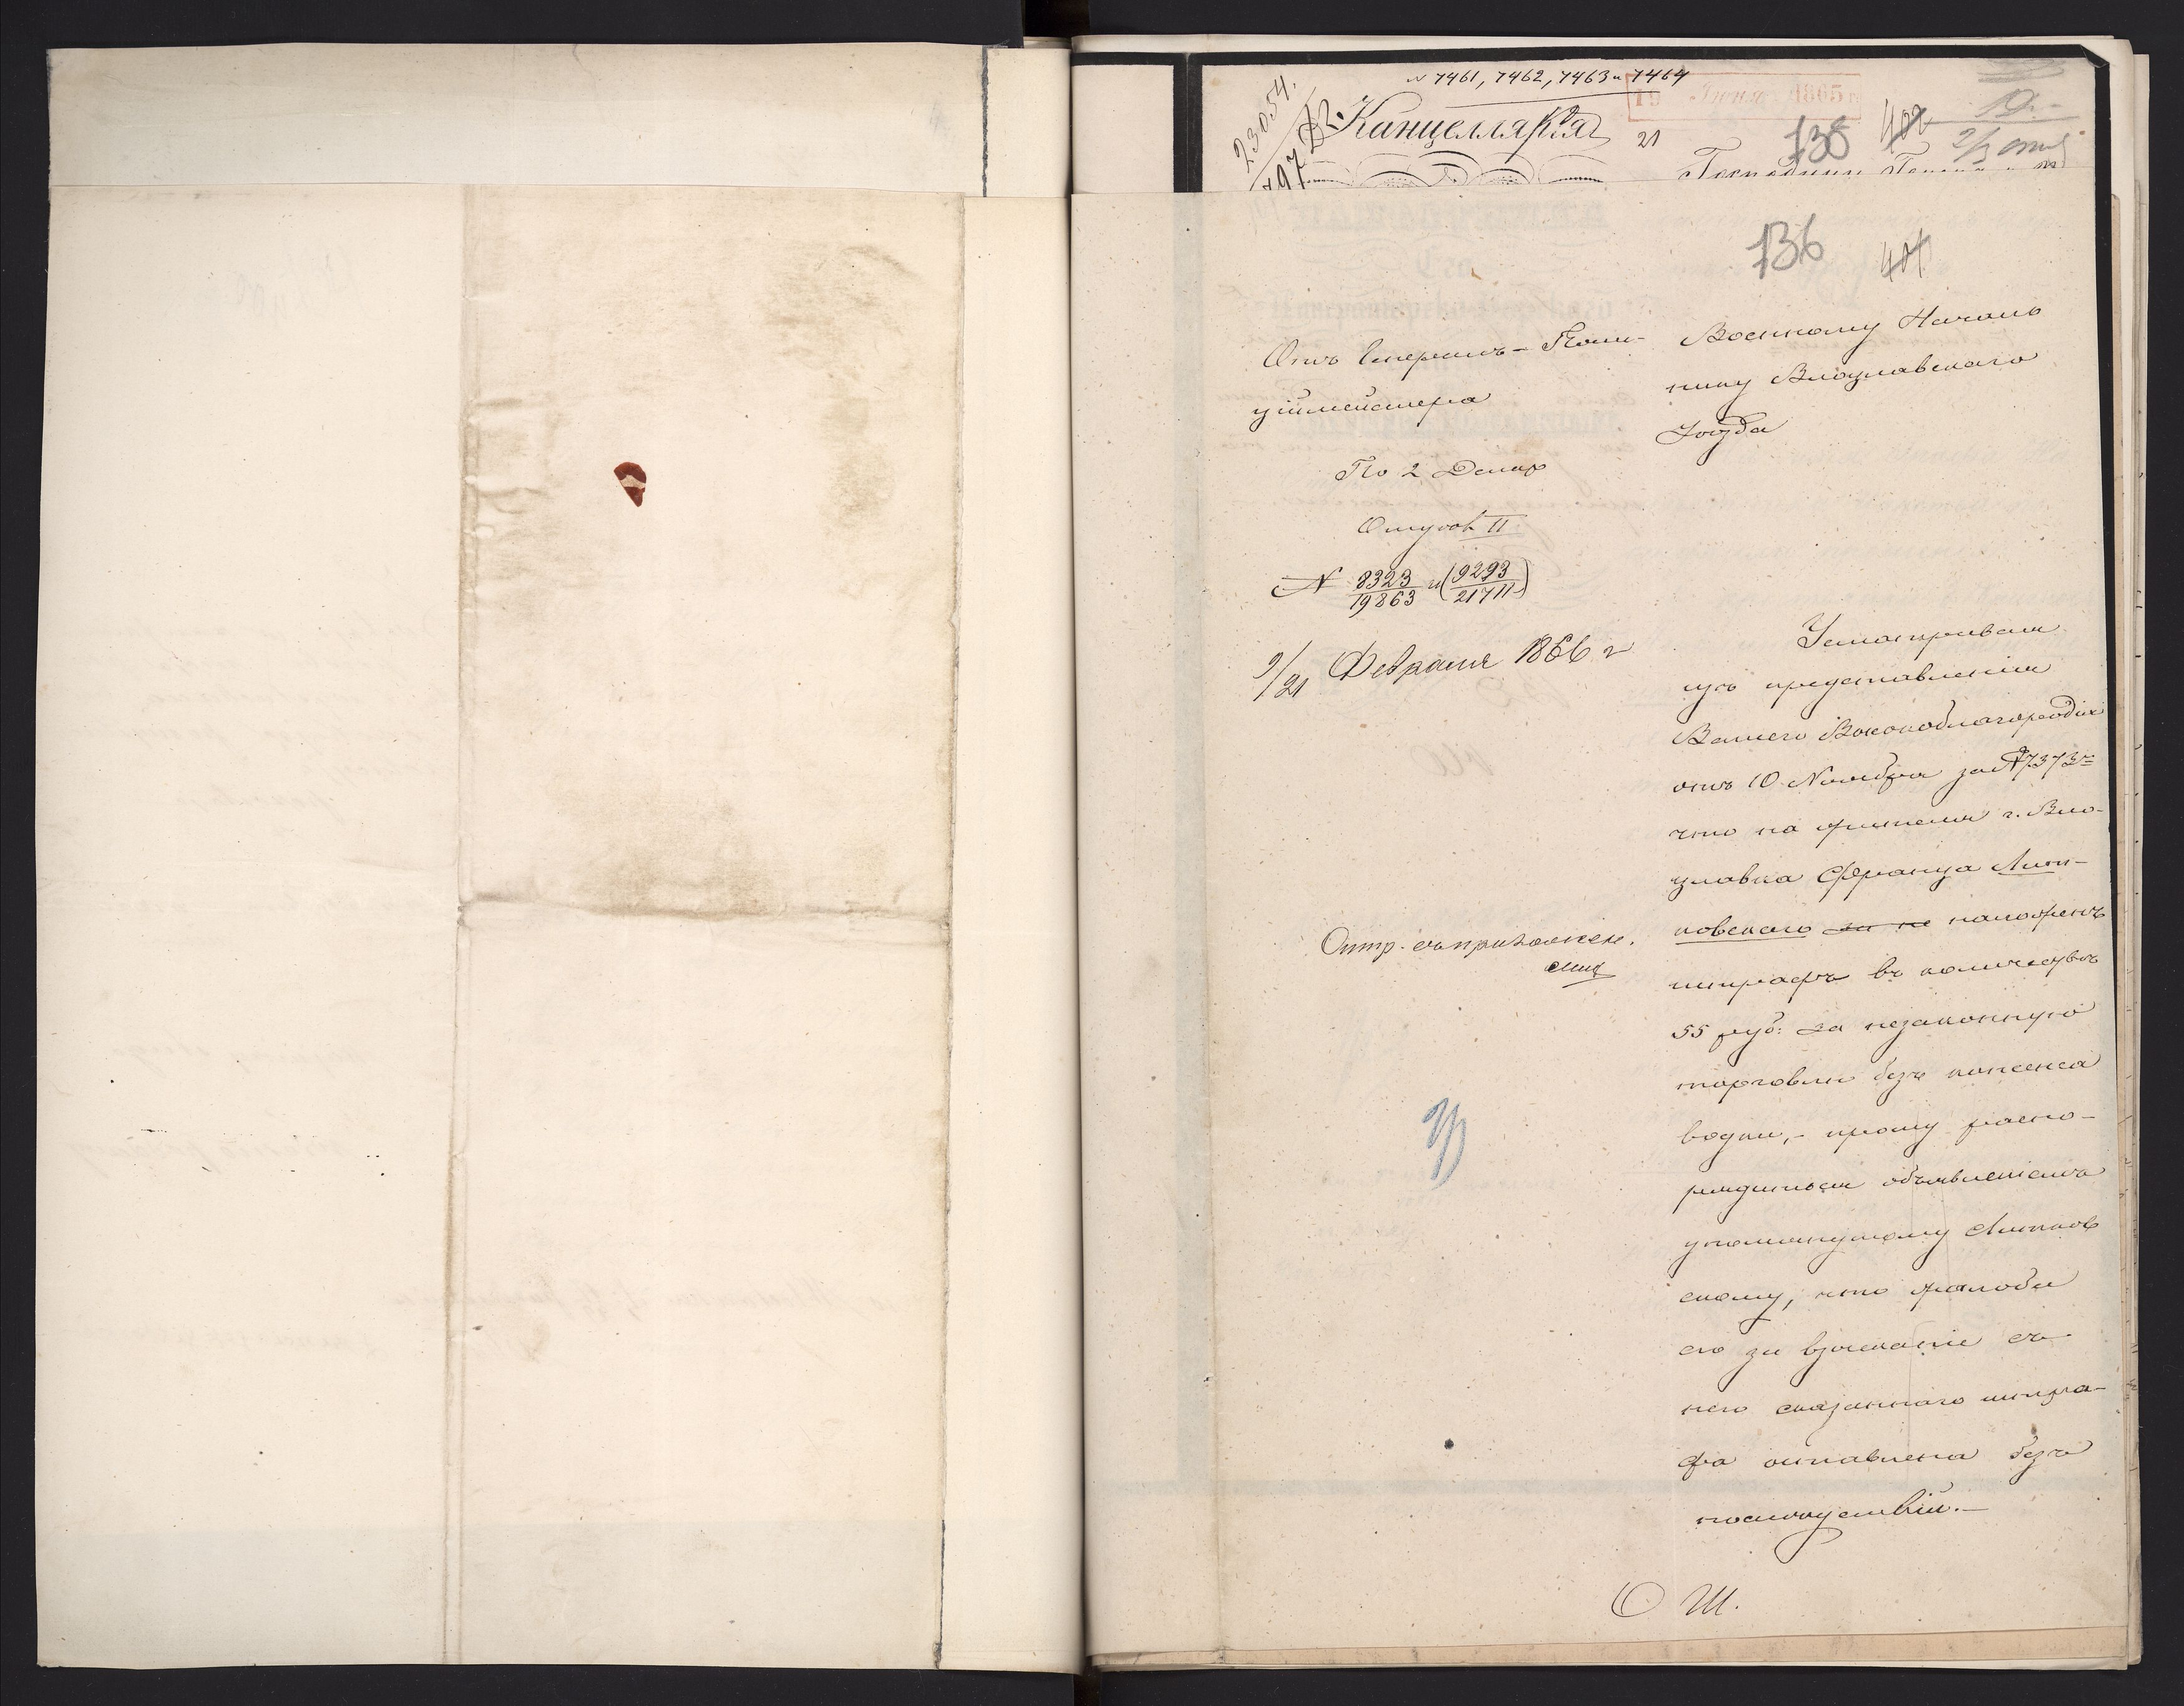 23054.
797
№ 7461, 7462, 7463 и 7464
19 Июня 1865 г
Канцелярия
21
138
402
136
401
Отъ Генералъ-Поли-
ціймейстера
По 2 Депар
N 8323/19863 и (9293/21711)
9/21 Февраля 1866 г
Отпр. съ приложен.
Военному Началь
нику Влоцлавскаго
Уѣзда
Усматривая
изъ представленія
Вашего Высокоблагородія
отъ 10 Ноября за N 7373
что на жителя г. Вло-
цлавка Франца Лип-
ковскаго за не наложенъ
штрафъ въ количествѣ
55 руб: за незаконную
торговлю безъ консенса
водки,- прошу распо-
рядиться объявленіемъ
упомянутому Липков
скому, что жалоба
его за взысканіе съ
него сказаннаго штра-
фа оставлена безъ
послѣдствій.-
О Ш.